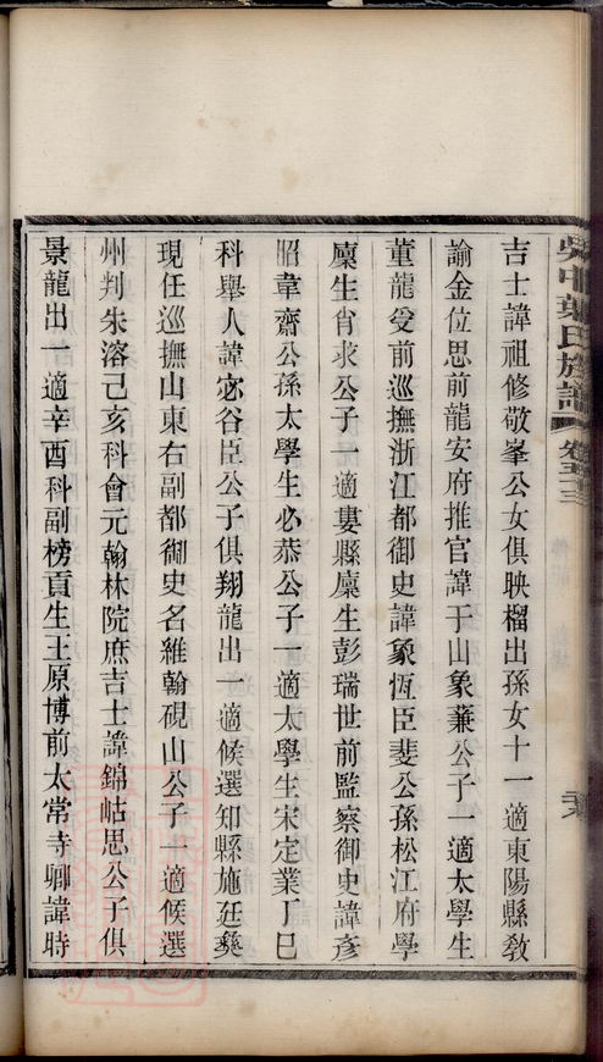 吳中葉氏族譜 卷五十三
吉士諱祖修敬峯公女俱映榴出孫女十一適東陽縣敎
諭金位思前龍安府推官諱于山象蒹公子一適太學生
董龍受前巡撫浙江都御史諱象恆臣斐公孫松江府學
廩生肖求公子一適婁縣廩生彭瑞世前監察御史諱彥
昭韋齋公孫太學生必恭公子一適太學生宋定業丁巳
科舉人諱宓谷臣公子俱翔龍出一適候選知縣施廷彝
現任巡撫山東右副都御史名維翰硯山公子一適候選
州判朱溶己亥科會元翰林院庶吉士諱錦岵思公子俱
景龍出一適辛酉科副榜貢生王原博前太常寺卿諱時